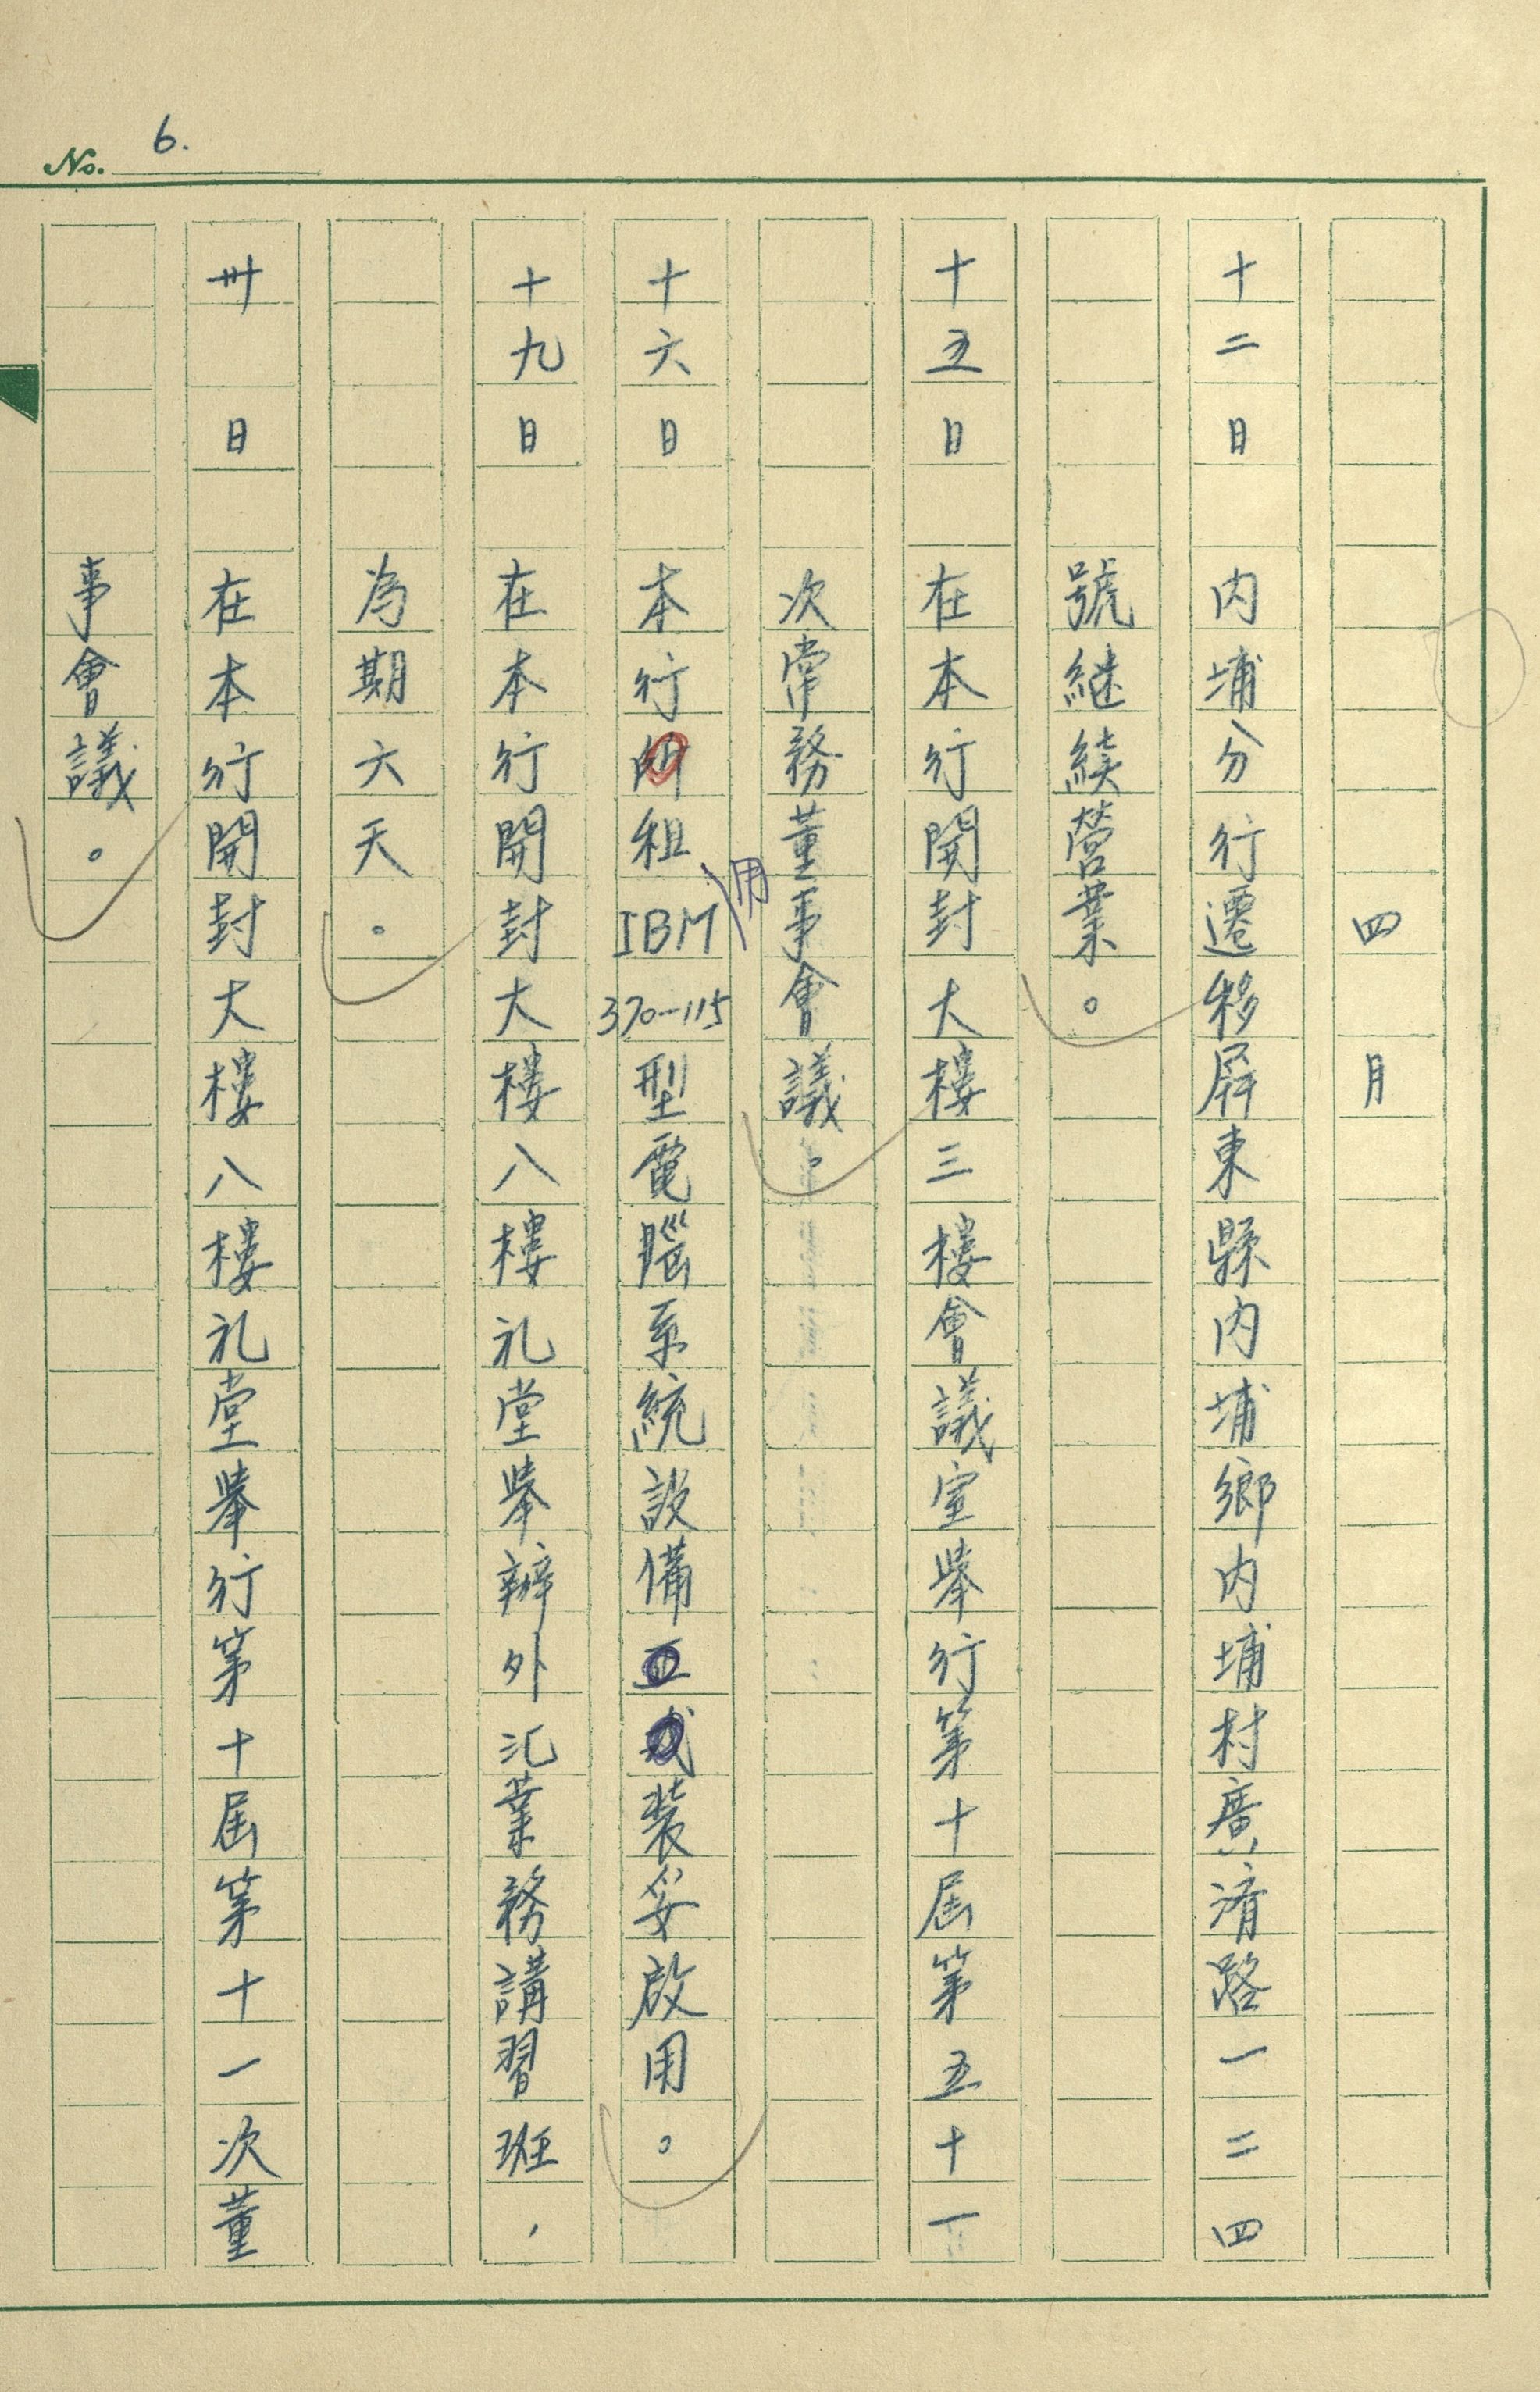 No. 6.
四月
十二日 内埔分行遷移屏東縣内埔鄉内埔村廣濟路一二四
號継續營業。
十五日 在本行開封大樓三樓會議室舉行第十屆第五十一
次常務董事會議。
十六日 本行所租用IBM370-115型電腦系統設備裝妥啟用。
十九日 在本行開封大樓八樓礼堂舉辦外汇業務講習班，
為期六天。
卅日 在本行開封大樓八樓礼堂舉行第十屆第十一次董
事會議。